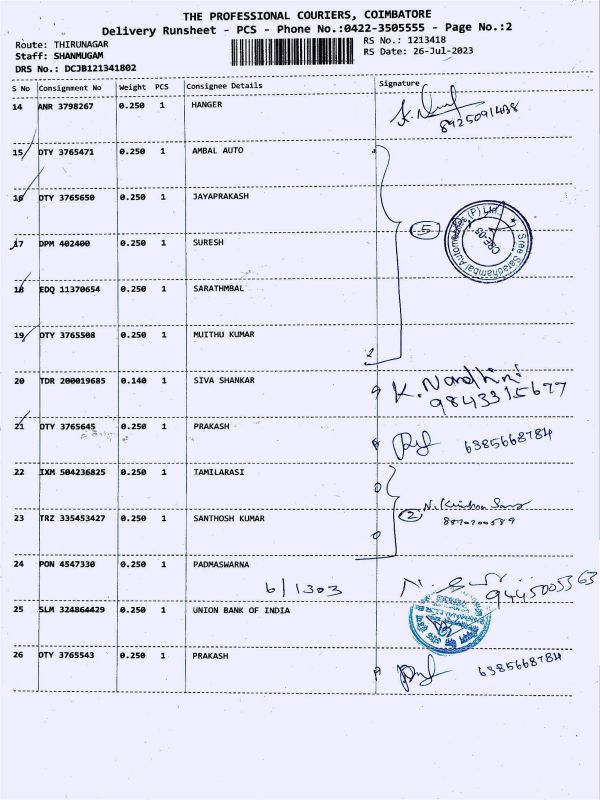 THE PROFESSIONAL COURIERS, COIMBATORE
Delivery Runsheet - PCS - Phone No.:0422-3505555 - Page No.:2
Route: THIRUNAGAR
RS No.: 1213418
Staff: SHANMUGAM
RS Date: 26-Jul-2023
DRS No.: DCJB121341802
S No Consignment No Weight PCS Consignee Details Signature
14 ANR 3798267 0.250 1 HANGER
8925091438
15 DTY 3765471 0.250 1 AMBAL AUTO
16 DTY 3765650 0.250 1 JAYAPRAKASH
5
Sree Saradhambal Automobiles (P) Ltd.
CBE-03
17 DPM 402400 0.250 1 SURESH
18 EDQ 11370654 0.250 1 SARATHMBAL
19 DTY 3765508 0.250 1 MUITHU KUMAR
20 TDR 200019685 0.140 1 SIVA SHANKAR
K. Nandhini
9843315677
21 DTY 3765645 0.250 1 PRAKASH
6385668784
22 IXM 504236825 0.250 1 TAMILARASI
23 TRZ 335453427 0.250 1 SANTHOSH KUMAR
2
24 PON 4547330 0.250 1 PADMASWARNA
6/1303
9445005363
25 SLM 324864429 0.250 1 UNION BANK OF INDIA
26 DTY 3765543 0.250 1 PRAKASH
6385668784